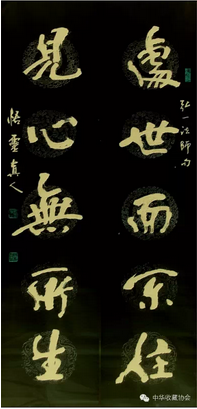 弘一法師句
處世而不住
見心無所生
悟靈真人
中华收藏协会